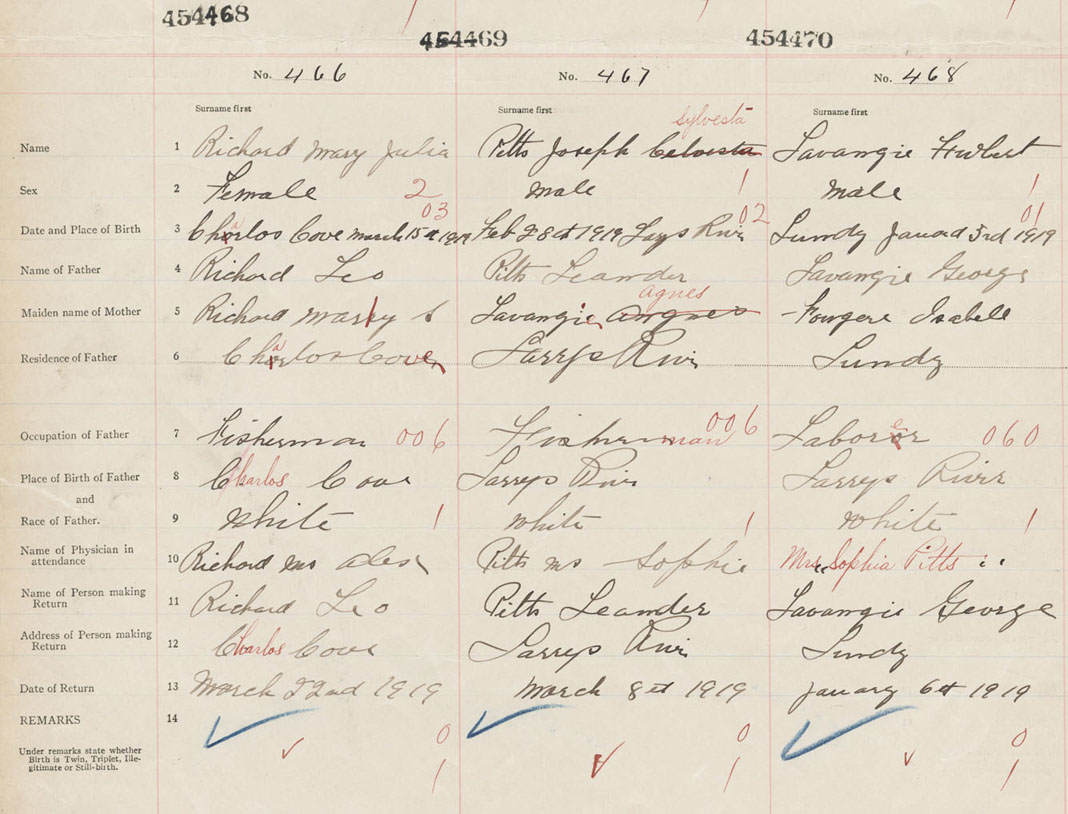 454468
454469 454470
No. 466 No. 467 No. 468
Surname first Surname first Surname first
Sylvesta
Name 1 Richard Mary Julia Pitts Joseph Celvesta Lavangie Hubert
Sex 2 Female 2 male 1 male 1
03 02 01
Date and Place of Birth 3 Charlos Cove March 15th 1919 Feb 28th 1919 Larys River Lundy January 3rd 1919
Name of Father 4 Richard Leo Pitts Leander Lavangie George
Agnes
Maiden name of Mother 5 Richard Mary S Lavangie Angnes Fougere Isabell
Residence of Father 6 Charlos Cove Larrys River Lundy
Occupation of Father 7 Fisherman 006 Fisherman 006 Laborer 060
Place of Birth of Father 8 Charlos Cove Larrys River Larrys River
and
Race of Father. 9 White 1 white 1 white 1
Name of Physician in
attendance 10 Richard Ms Alex Pitts Ms Sophie Mrs. Sophia Pitts
Name of Person making
Return 11 Richard Leo Pitts Leander Lavangie George
Address of Person making
Return 12 Charlos Cove Larrys River Lundy
Date of Return 13 March 22nd 1919 March 8th 1919 January 6th 1919
REMARKS 14
Under remarks state whether
Birth is Twin, Triplet, Ille-
gitimate or Still-birth.
0 0 0
1 1 1